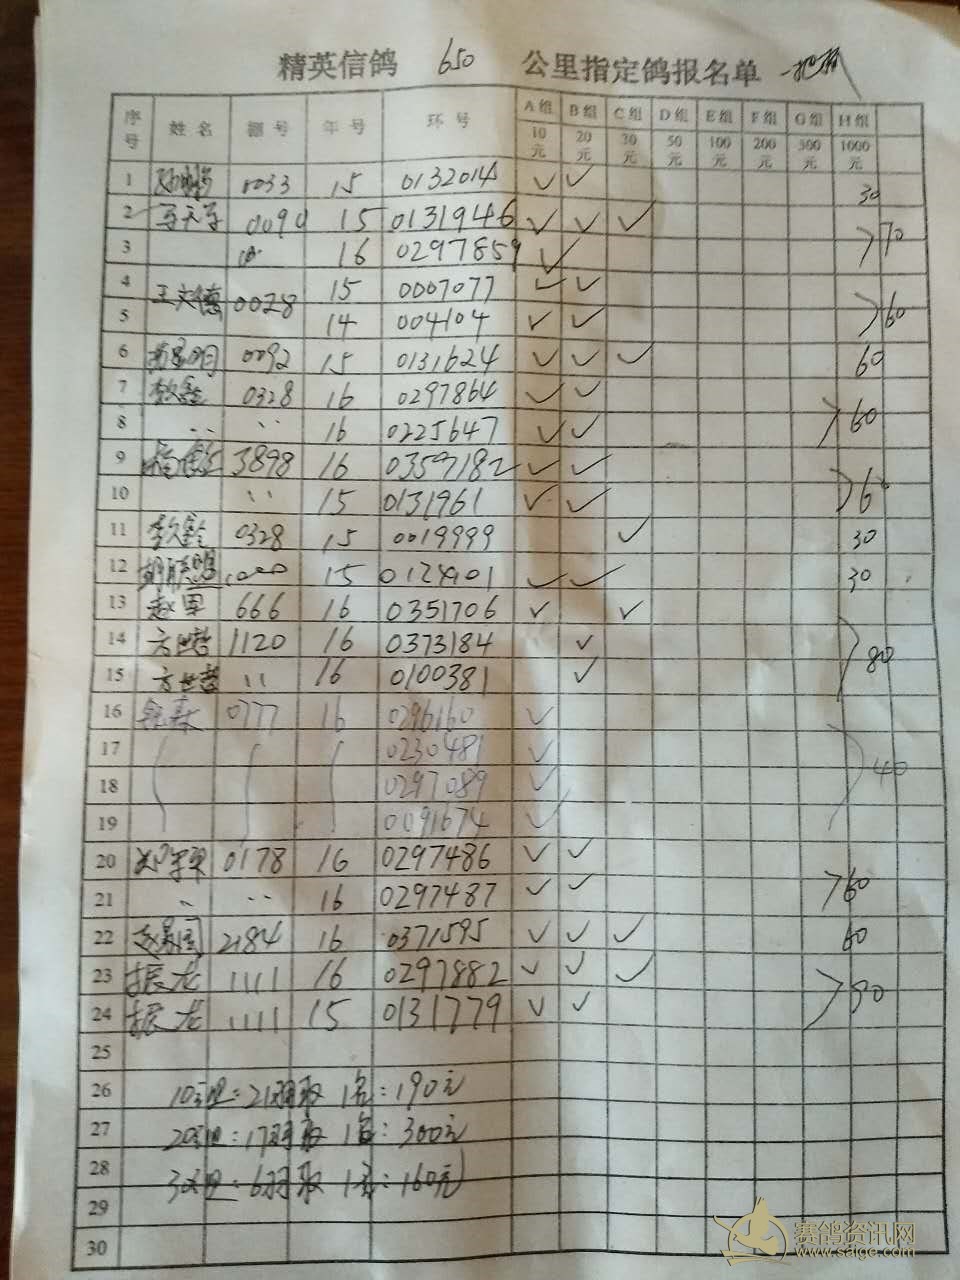 精英信鸽 650 公里指定鸽报名单
序号 姓名 棚号 年号 环号 A组 B组 C组 D组 E组 F组 G组 H组
10元 20元 30元 50元 100元 200元 300元 1000元
1 0033 15 0132014 ✓ ✓ 30
2 0090 15 0131946 ✓ ✓ ✓
3 16 0297859 ✓ 70
4 王文德 0028 15 0007077 ✓ ✓
5 14 004104 ✓ ✓ 60
6 0092 15 0131624 ✓ ✓ ✓ 60
7 李久鑫 0328 16 0297864 ✓ ✓
8 16 0225647 ✓ ✓ 60
9 3898 16 0359182 ✓ ✓
10 15 0131961 ✓ ✓
11 李久鑫 0328 15 0019999 ✓ 30
12 15 ✓ ✓ 30
13 赵军 666 16 0351706 ✓ ✓
14 1120 16 0373184 ✓
15 16 0100381 ✓ 80
16 0777 16 0296160 ✓
17 0230481 ✓
18 0297089 ✓ 40
19 0091674 ✓
20 0178 16 0297486 ✓ ✓
21 16 0297487 ✓ ✓ 60
22 2184 16 0371595 ✓ ✓ ✓ 60
23 振龙 1111 16 0297882 ✓ ✓ ✓
24 振龙 1111 15 0131779 ✓ ✓ 90
25
26 10元组:21羽取1名:190元
27 20元组:17羽取1名:300元
28 30元组:6羽取1名:160元
29
30
赛鸽资讯网
www.saige.com